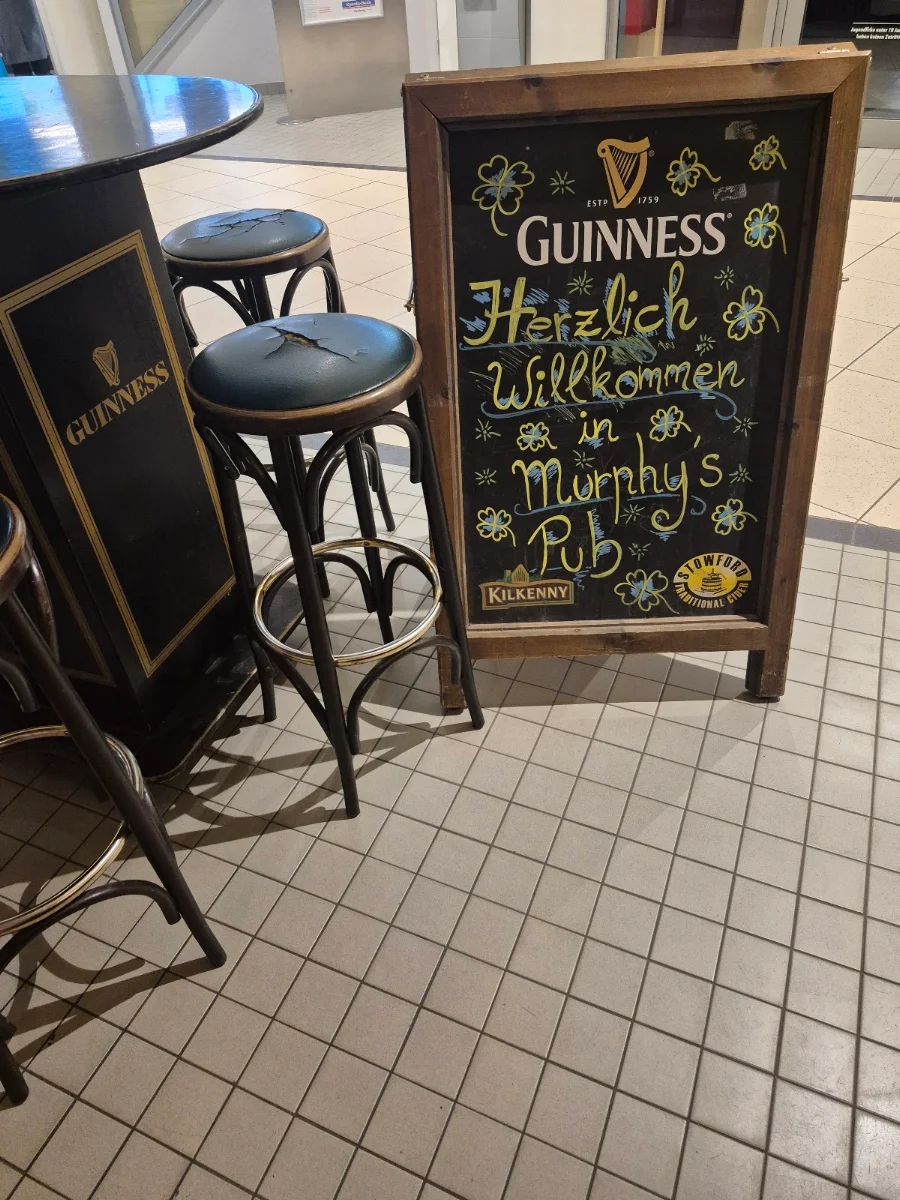 ESTD 1759
GUINNESS
Herzlich
Willkommen
in
Murphy's
Pub
KILKENNY
STOWFORD
TRADITIONAL CIDER
GUINNESS